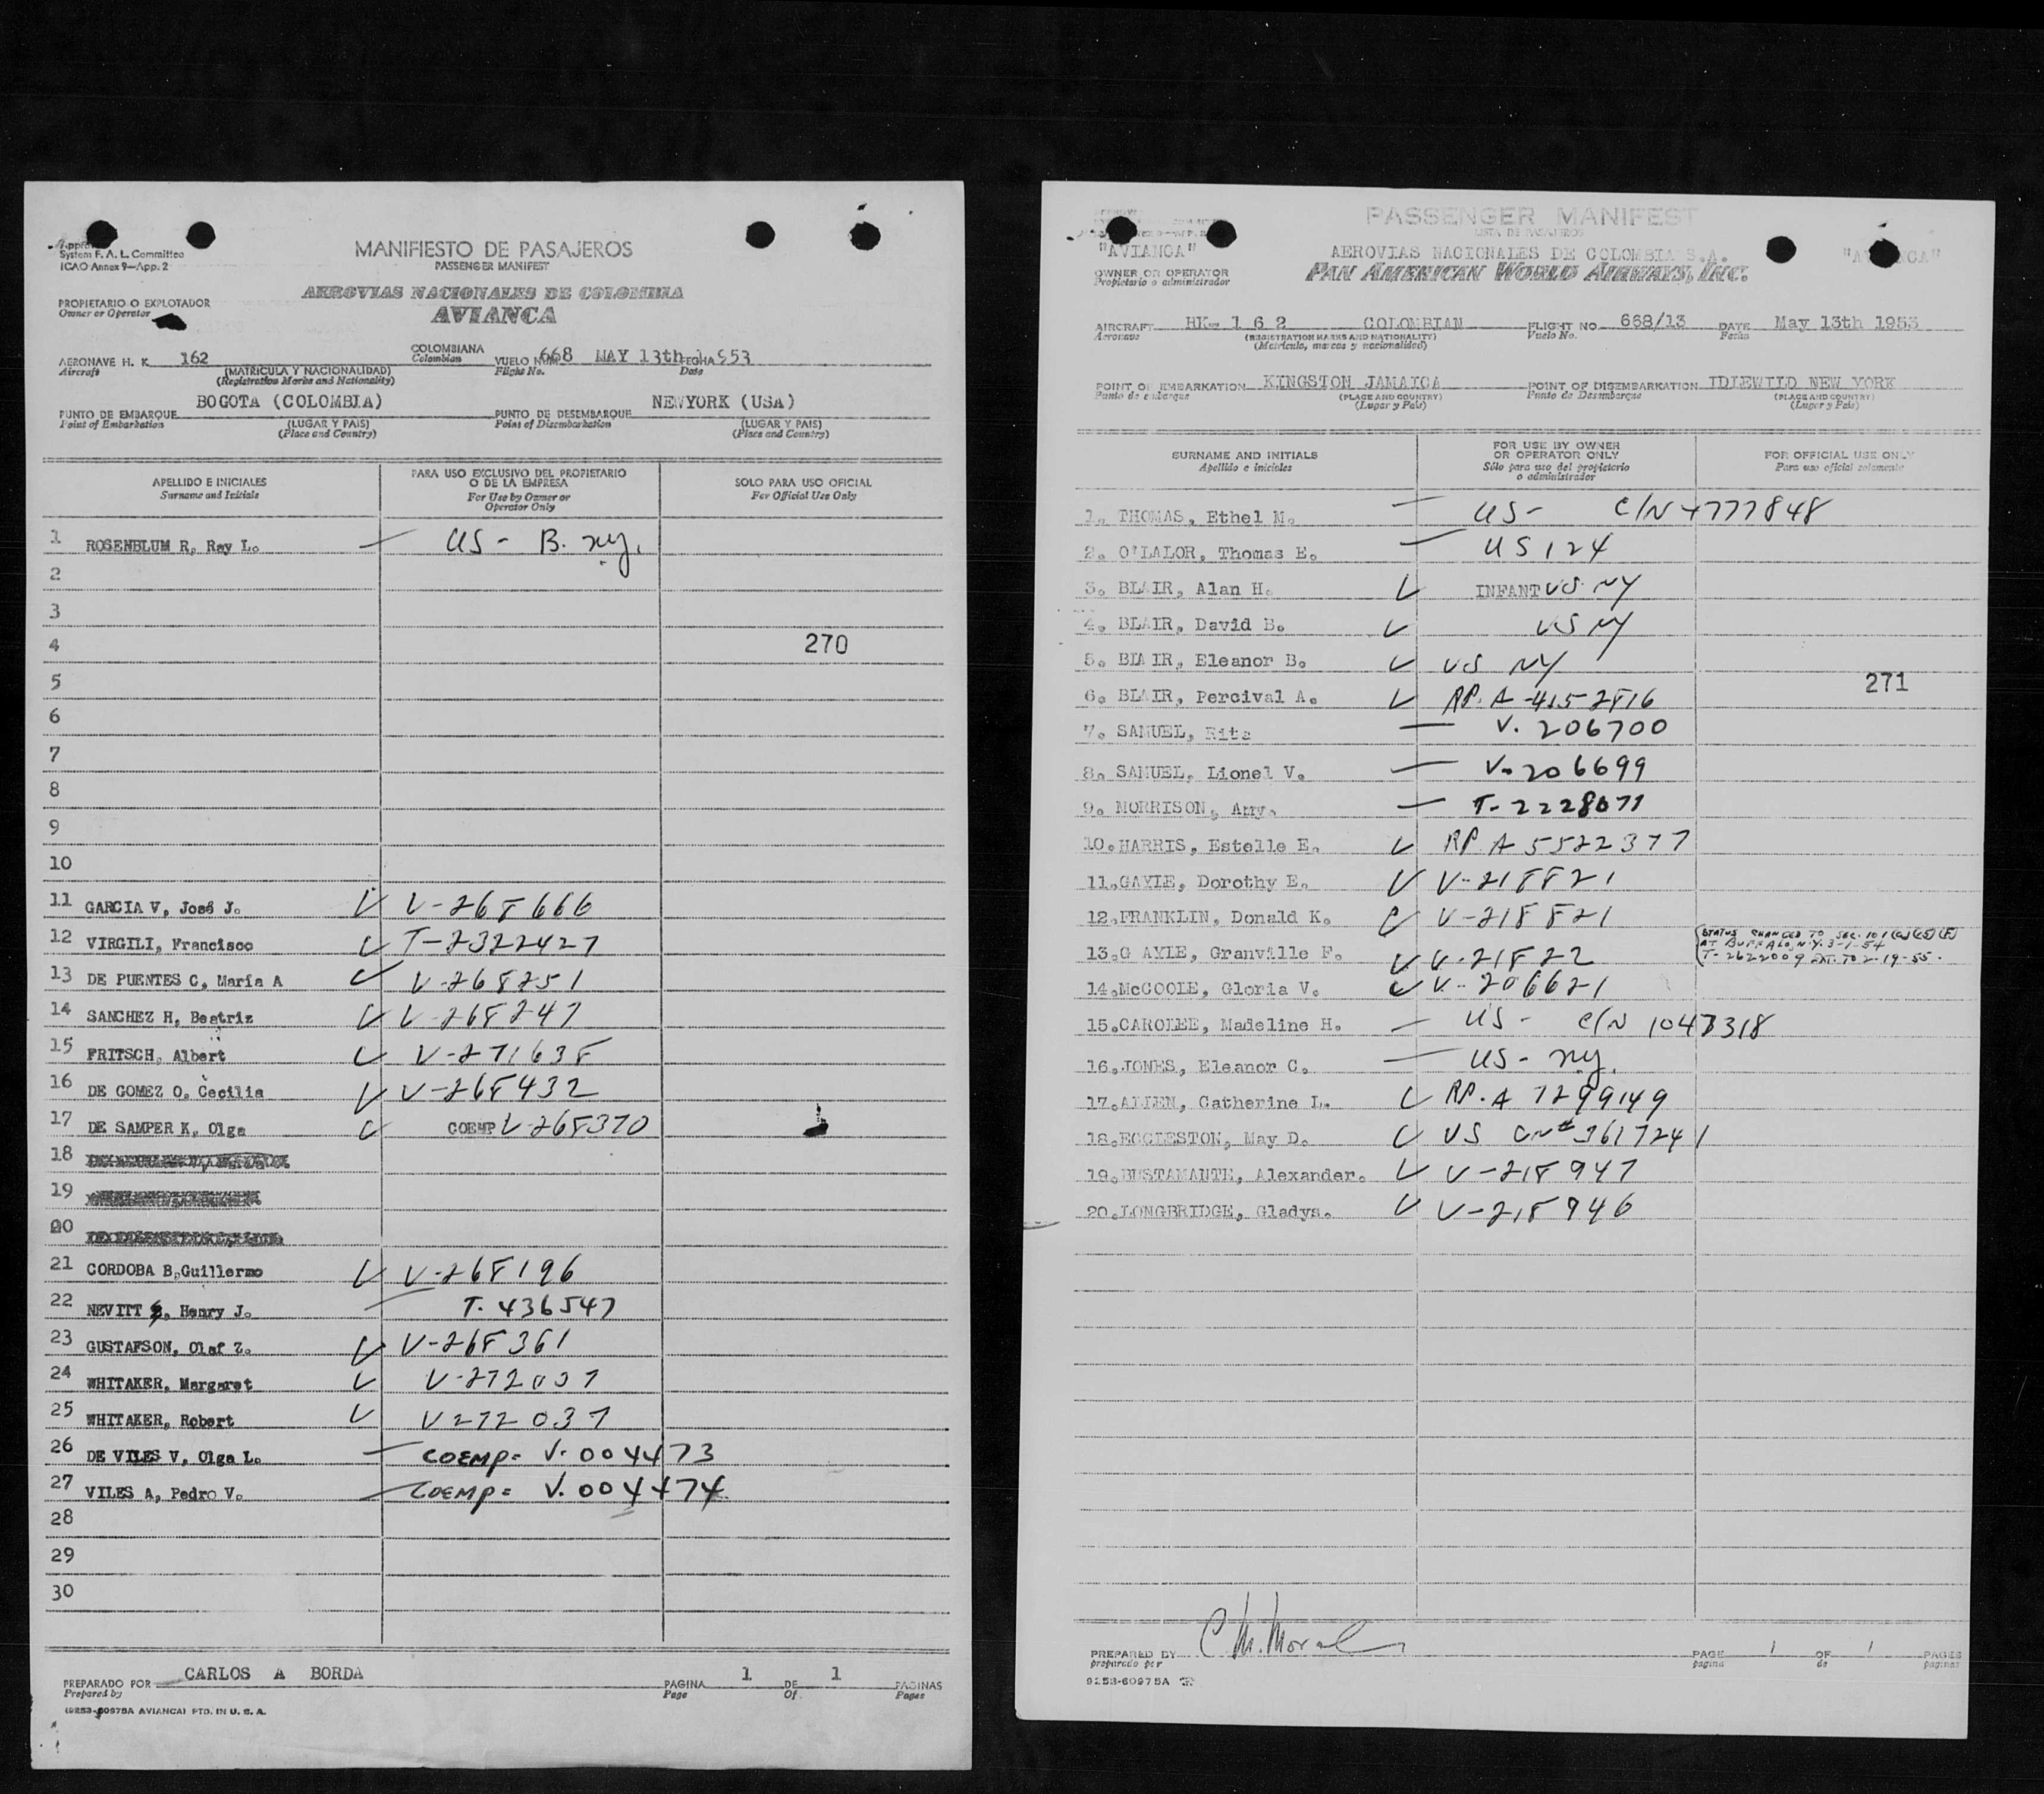 System F. A. L. Committee
ICAO Annex 9—App. 2
MANIFIESTO DE PASAJEROS
PASSENGER MANIFEST
PROPIETARIO O EXPLOTADOR
Owner or Operator
AEROVIAS NACIONALES DE COLOMBIA
AVIANCA
AERONAVE H. K. 162 COLOMBIANA VUELO NUM. 668 MAY 13th FECHA 953
Aircraft (MATRICULA Y NACIONALIDAD) Colombian Flight No. Date
(Registration Marks and Nationality)
BOGOTA (COLOMBIA) NEWYORK (USA)
PUNTO DE EMBARQUE (LUGAR Y PAIS) PUNTO DE DESEMBARQUE (LUGAR Y PAIS)
Point of Embarkation (Place and Country) Point of Disembarkation (Place and Country)
APELLIDO E INICIALES
Surname and Initials
PARA USO EXCLUSIVO DEL PROPIETARIO
O DE LA EMPRESA
For Use by Owner or
Operator Only
SOLO PARA USO OFICIAL
For Official Use Only
1 ROSENBLUM R, Ray L. — US - B. ny.
2
3
4 270
5
6
7
8
9
10
11 GARCIA V, José J. V-268666
12 VIRGILI, Francisco T-2322427
13 DE PUENTES C, María A V-268251
14 SANCHEZ H, Beatriz V-268247
15 FRITSCH, Albert V-271638
16 DE GOMEZ O, Cecilia V-268432
17 DE SAMPER K, Olga COEMP V-268370
18
19
20
21 CORDOBA B,Guillermo V-268196
22 NEVITT, Henry J. T. 436547
23 GUSTAFSON, Olaf Z. V-268361
24 WHITAKER, Margaret V-272037
25 WHITAKER, Robert V272037
26 DE VILES V, Olga L. — COEMP= V. 004473
27 VILES A, Pedro V. — COEMP= V. 004474
28
29
30
PREPARADO POR CARLOS A BORDA PAGINA 1 DE 1 PAGINAS
Prepared by Page Of Pages
(9253-60975A AVIANCA) PTD. IN U. S. A.
PASSENGER MANIFEST
LISTA DE PASAJEROS
"AVIANCA" AEROVIAS NACIONALES DE COLOMBIA S.A.
OWNER OR OPERATOR PAN AMERICAN WORLD AIRWAYS, INC.
Propietario o administrador
AIRCRAFT HK- 1 6 2 COLOMBIAN FLIGHT NO. 668/13 DATE May 13th 1953
Aeronave (REGISTRATION MARKS AND NATIONALITY) Vuelo No. Fecha
(Matricula, marcas y nacionalidad)
POINT OF EMBARKATION KINGSTON JAMAICA POINT OF DISEMBARKATION IDLEWILD NEW YORK
Punto de embarque (PLACE AND COUNTRY) Punto de Desembarque (PLACE AND COUNTRY)
(Lugar y Pais) (Lugar y Pais)
SURNAME AND INITIALS
Apellido e iniciales
FOR USE BY OWNER
OR OPERATOR ONLY
Sólo para uso del propietario
o administrador
FOR OFFICIAL USE ONLY
Para uso oficial solamente
1. THOMAS, Ethel M. — US - C/N 4777848
2. O'LALOR, Thomas E. — US 124
3. BLAIR, Alan H. INFANT US NY
4. BLAIR, David B. US NY
5. BLAIR, Eleanor B. US NY
271
6. BLAIR, Percival A. RP. A-4152816
7. SAMUEL, Rita — V. 206700
8. SAMUEL, Lionel V. — V. 206699
9. MORRISON, Amy. — T-2228071
10. HARRIS, Estelle E. RP. A 5522377
11. GAYLE, Dorothy E. V-218821
12. FRANKLIN, Donald K. V-218821
STATUS CHANGED TO SEC. 101(a)(15)(F)
AT BUFFALO, N.Y. 3-1-54
T-2622009 EXT. TO 2-19-55.
13. G AYLE, Granville F. V-21822
14. McCOOLE, Gloria V. V-206621
15. CAROLEE, Madeline H. — US - C/N 1047318
16. JONES, Eleanor C. — US - ny.
17. ALLEN, Catherine L. RP. A 7299149
18. ECCLESTON, May D. US CN# 3617241
19. BUSTAMANTE, Alexander. V-218947
20. LONGBRIDGE, Gladys. V-218946
PREPARED BY PAGE 1 OF 1 PAGES
preparado por pagina de paginas
9253-60975A